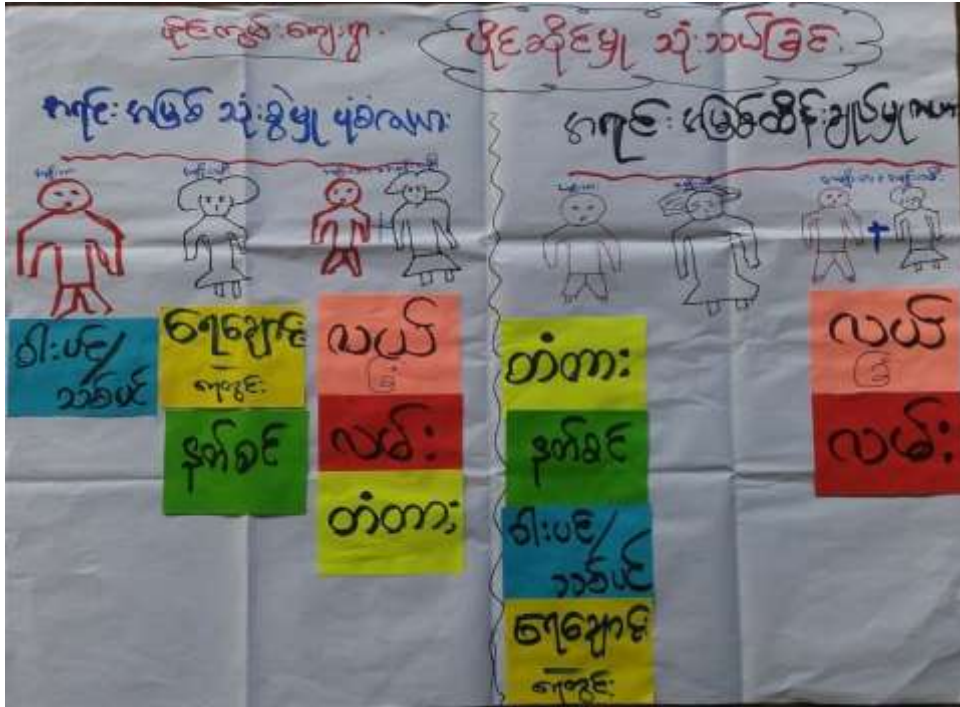 ဖိုင်ကျွန်းကျေးရွာ
ပိုင်ဆိုင်မှု သုံးသပ်ခြင်း
အရင်းအမြစ် သုံးစွဲမှု ပုံစံကယား
အရင်းအမြစ်ထိန်းချုပ်မှုကယား
ဝါးပင်/
သစ်ပင်
ရေချောင်း
ရေတွင်း
နတ်စင်
လယ်
ခြံ
လမ်း
တံတား
တံတား
နတ်စင်
ဝါးပင်/
သစ်ပင်
ရေချောင်း
ရေတွင်း
လယ်
ခြံ
လမ်း